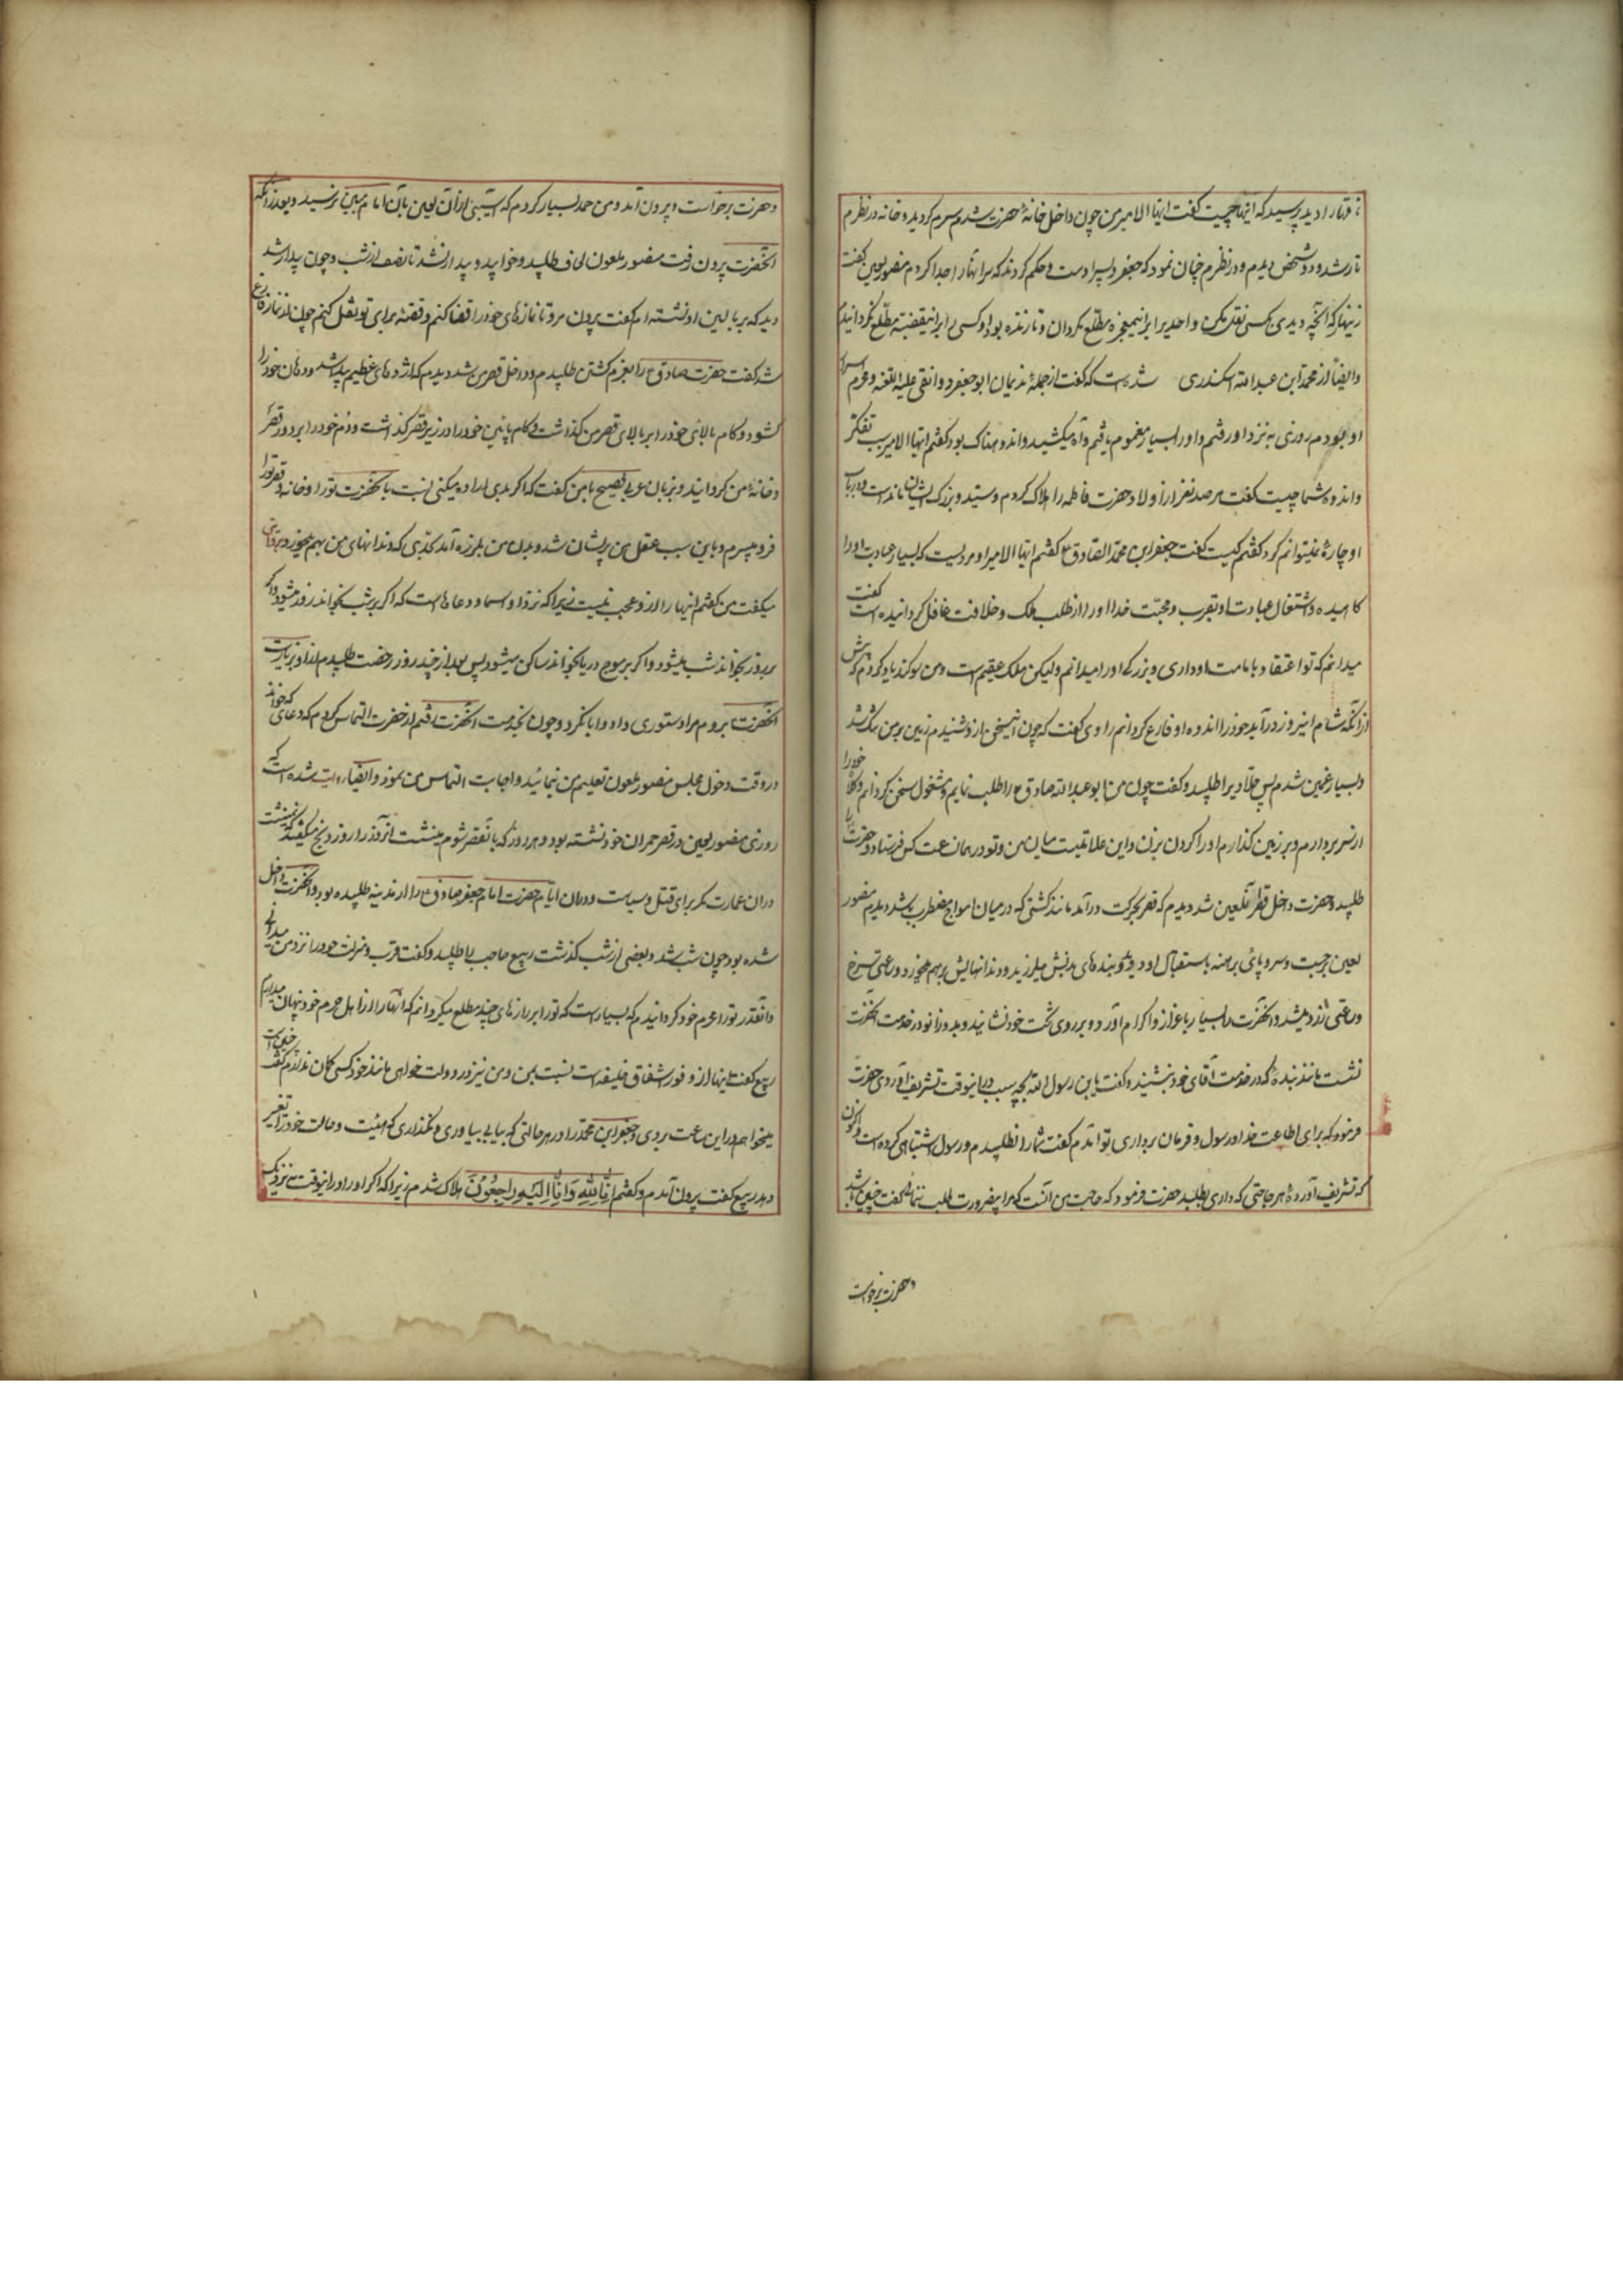 ناقه را دید پرسید که اینها چیست گفت ایها الامیر من چون داخل خانهٔ حضرت شدم سرم گردید و خانه در نظرم
تار شد و دو شخص دیدم و در نظرم چنان نمود که جعفر و پسر اوست و حکم کردند که سر آنها را جدا کردم منصور لعین گفت
زینهار که آنچه دیدی بکسی نقل مکن و احدیرا براینمعجزه مطلع مگردان و تا زنده بود او کسی را براینقضیه مطلع نگردانیدم
و ایضاً از محمد ابن عبدالله اسکندری شده است که گفت از جملهٔ ندیمان ابو جعفر دوانقی علیه اللعنه و محرم اسرار
او بودم روزی به نزد او رفتم و او را بسیار مغموم یافتم و آه میکشید و اندوهناک بود گفتم ایها الامیر سبب تفکر
و اندوه شما چیست گفت صد نفر از اولاد حضرت فاطمه را هلاک کردم و سید و بزرگ ایشان مانده است و در باب
او چارهٔ نمیتوانم کرد گفتم کیست گفت جعفر ابن محمد الصادق ع گفتم ایها الامیر او مردیست که بسیار عبادت او را
کاهیده و اشتغال عبادت او بقرب و محبت خدا او را از طلب ملک و خلافت غافل گردانیده است گفت
میدانم که تو اعتقاد بامامت او داری و بزرگی او را میدانم ولیکن ملک عقیم است و من سوگند یاد کردم که پیش
از آنکه شام امروز درآید خود را از اندوه او فارغ گردانم راوی گفت که چون این سخن از او شنیدم زمین بر من تنگ شد
و بسیار غمین شدم پس جلادیرا طلبید و گفت چون من ابو عبدالله صادق ع را طلب نمایم و مشغول سخن گردانم و کلاه خود را
از سر بردارم و بر زمین گذارم او را گردن بزن و این علامتیست میان من و تو در همان ساعت کس فرستاد و حضرت را
طلبید و حضرت داخل قصر آنلعین شد دیدم که قصر بحرکت درآمد مانند کشتی که در میان امواج مضطرب باشد دیدم منصور
لعین برجست و سر و پای برهنه باستقبال او دوید و بندهای بدنش میلرزید و دندانهایش برهم میخورد و ساعتی سرخ
و ساعتی زرد میشد و آنحضرت را بسیار باعزاز و اکرام آورد و بر روی تخت خود نشانید و بدو زانو در خدمت آنحضرت
نشست مانند بندهٔ که در خدمت آقای خود بنشیند و گفت یابن رسول الله بچه سبب در اینوقت تشریف آوردی حضرت
فرمود که برای اطاعت خدا و رسول و فرمان برداری تو آمدم گفت شما را نطلبیدم و رسول اشتباهی کرده است و اکنون
که تشریف آوردهٔ هر حاجتی که داری بطلبید حضرت فرمود که حاجت من آنست که مرا بیضرورت طلب ننمائی گفت چنین باشد
و حضرت برخواست
و حضرت برخواست و بیرون آمد و من حمد بسیار کردم که آسیبی از آن لعین بآن امام مبین نرسید و بعد از آنکه
آنحضرت بیرون رفت منصور ملعون لحاف طلبید و خوابید و بیدار نشد تا نصف از شب و چون بیدار شد
دید که بر بالین او نشسته ام گفت بیرون مرو تا نمازهای خود را قضا کنم و قصهٔ برای تو نقل کنم چون از نماز فارغ
شد گفت حضرت صادق ع را بعزم کشتن طلبیدم و داخل قصر من شد دیدم که اژدهای عظیم پیدا شد و دهان خود را
گشود و کام بالای خود را بر بالای قصر من گذاشت و کام پائین خود را در زیر قصر گذاشت و دم خود را بر دور قصر
و خانهٔ من گردانید و بزبان عربی فصیح با من گفت که اگر بدی اراده میکنی نسبت بآنحضرت تو را و خانه و قصر تو را
فرو میبرم و باین سبب عقل من پریشان شد و بدن من بلرزه آمد بحدی که دندانهای من بهم میخورد راوی
میگفت من گفتم اینها را از او عجب نیست زیرا که نزد او اسما و دعاها است که اگر بر شب بخواند روز میشود و اگر
بر روز بخواند شب میشود و اگر بر موج دریا بخواند ساکن میشود پس بعد از چند روز رخصت طلبیدم از او بزیارت
آنحضرت بروم مرا دستوری داد و ابا نکرد و چون بخدمت آنحضرت رفتم از حضرت التماس کردم که دعای که خواندند
در وقت دخول مجلس منصور ملعون تعلیم من نمائید و اجابت التماس من نمود و ایضاً روایت شده است که
روزی منصور لعین در قصر حمران خود نشسته بود و هر روز که بآنقصر شوم مینشست آنروز را روز ذبح میگفتند که نمینشست
در آن عمارت مگر برای قتل و سیاست و در آن ایام حضرت امام جعفر صادق ع را از مدینه طلبیده بود و آنحضرت داخل
شده بود چون شب شد و بعضی از شب گذشت ربیع حاجب را طلبید و گفت قرب و منزلت خود را نزد من میدانی
و آنقدر تو را محرم خود گردانیدم که بسیار است که تو را بر رازهای چند مطلع میگردانم که آنها را از اهل حرم خود پنهان میدارم
ربیع گفت اینها از وفور اشفاق خلیفه است نسبت بمن و من نیز در دولت خواهی مانند خود کسی گمان ندارم گفت چنین است
میخواهم در این ساعت بروی و جعفر ابن محمد را در هر حالتی که بیابی بیاوری و نگذاری که هیئت و حالت خود را تغییر
دهد ربیع گفت بیرون آمدم و گفتم اِنّا لِلّٰهِ وَاِنّا اِلَیهِ راجِعُونَ هلاک شدم زیرا که اگر او را در اینوقت نزدیک